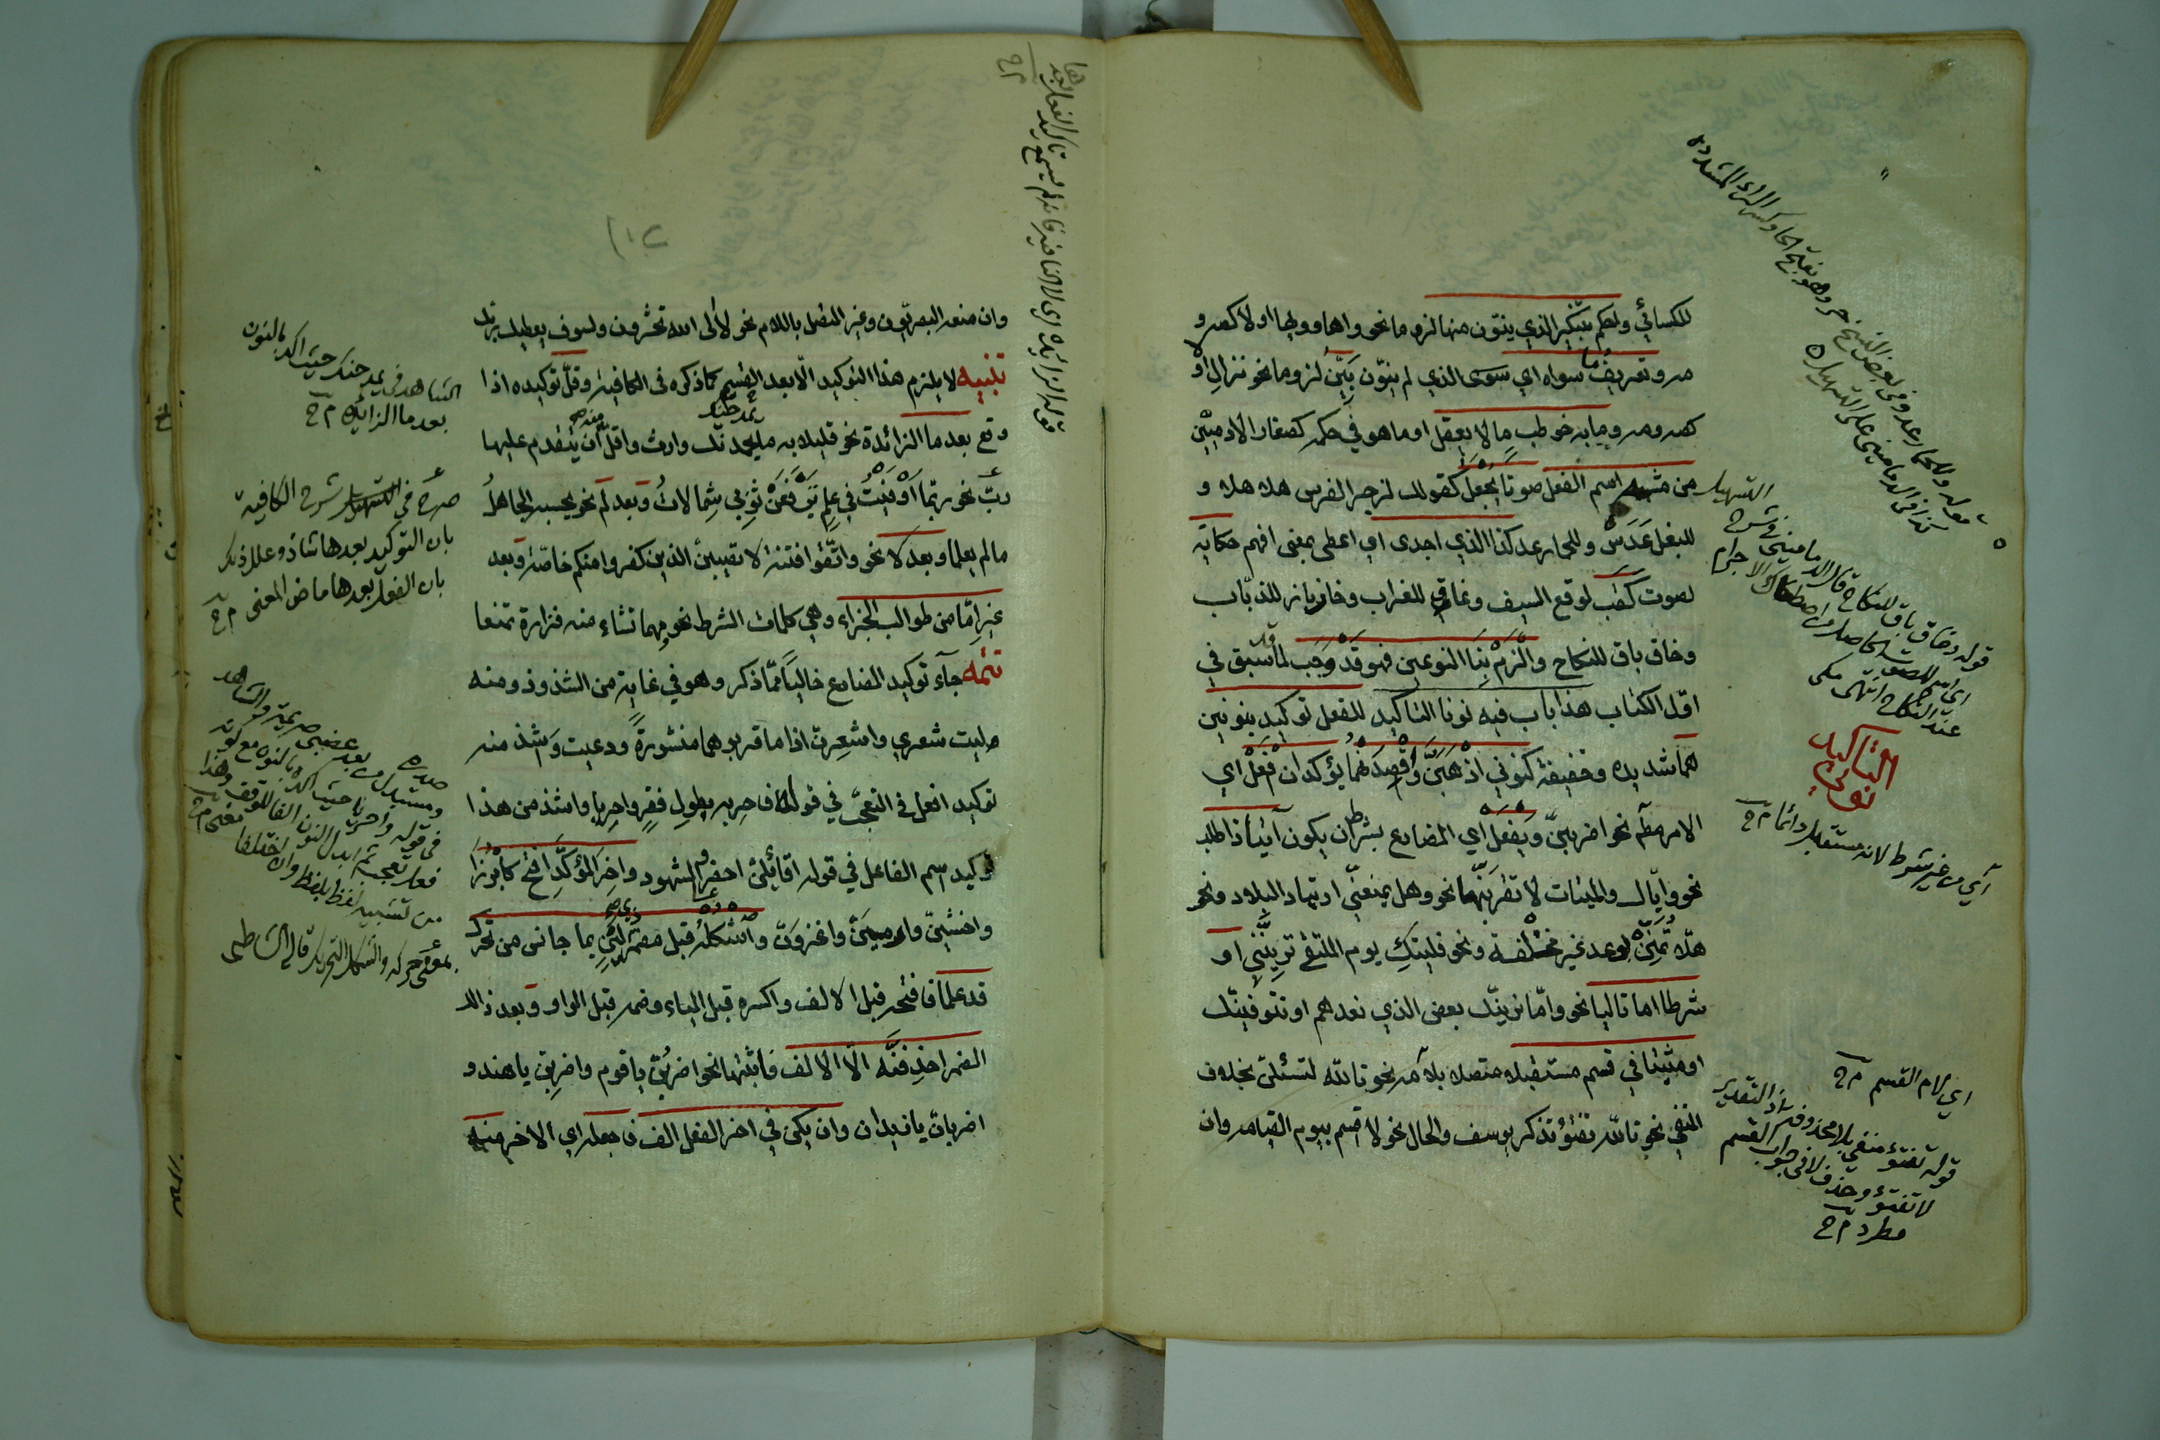 للكسائي واحكم بتنكير الذي ينوّن منها لزوما نحو واها وويها اولا كصه و
مه وتعريف ما سواه اي سوى الذي لم ينوّن بيّن لزوما نحو نزال او لا
كصه ومه وما به خوطب ما لا يعقل او ما هو في حكمه كصغار الادميّين
من مشبه اسم الفعل صوتا يجعل كقولك لزجر الفرس هلا هلا و
للبغل عدس وللحمار عد كذا الذي اجدى اي اعطى بمعنى افهم حكاية
لصوت كقب لوقع السيف وغاق للغراب وخازباز للذباب
وخاق باق للنكاح والزم بنا النوعين فهو قد وجب لما سبق في
اوّل الكتاب هذا باب فيه نونا التاكيد للفعل توكيد بنونين
هما شديدة وخفيفة كنوني اذهبنّ واقصدنهما يؤكدان افعل اي
الامر مطلقا نحو اضربنّ ويفعل اي المضارع بشرط ان يكون آتيا ذا طلب
نحو وايّاك والميتات لا تقربنّها نحو وهل يمنعنّي ارتياد البلاد ونحو
هلّا تمنّن بوعد غير مخلفة ونحو فليتك يوم الملتقى ترينّني او
شرطا اما تاليا نحو وامّا نرينّك بعض الذي نعدهم او نتوفينّك
او مثبتا في قسم مستقبلا متصلا بلامه نحو تالله لتسئلنّ بخلاف
المنفي نحو تالله تفتؤ تذكر يوسف والحال نحو لا اقسم بيوم القيامه وان
قوله وللحمار عد وفي بعض النسخ حر وهو بفتح الحا وكسر الراء المشددة
كذا في الدماميني على التسهيل
قوله وخاق باق للنكاح قال الدماميني في شرح التسهيل
اي للصوت الحاصل من اصطكاك الاجرام
عند النكاح انتهى مكي
نوني التاكيد
اي من غير شرط لانه مستقبل دائما م ح
اي لام القسم م ح
قوله تفتؤ منفي بلا محذوفة اذ التقدير
لا تفتؤ وحذف لا في جواب القسم
مطرد م ح
وان منعه البصريّون وغير المتصل باللام نحو لالى الله تحشرون ولسوف يعطيك ربّك
تنبيه لا يلزم هذا التوكيد الّا بعد القسم كما ذكره في الكافية وقلّ توكيده اذا
وقع بعد ما الزائدة نحو قليلا به ما يحمدنّك وارث واقلّ منه ان يتقدم عليها
ربّ نحو ربّما اوفيت في علم ترفعن ثوبي شمالات وبعد لم نحو يحسبه الجاهل
ما لم يعلما وبعد لا نحو واتّقوا فتنة لا تصيبنّ الذين كفروا منكم خاصّة وبعد
غير امّا من طوالب الجزاء وهي كلمات الشرط نحو مهما تشاء منه فزارة تمنعا
تتمه جآء توكيد المضارع خاليا ممّا ذكر وهو في غاية من الشذوذ ومنه
ليت شعري واشعرنّ اذا ما قربوها منشورة ودعيت وشذ منه
توكيد افعل في التعجّب في قوله فاحر به بطول فقر واحريا واشذ من هذا
توكيد اسم الفاعل في قوله اقائلنّ احضروا الشهود واخر المؤكّد افتح كابرزا
واخشينّ وارمينّ واغزونّ واشكله قبل مضمر لين بما جانس من تحرّك
قد علما فافتحه قبل الالف واكسره قبل الياء وضمه قبل الواو وبعد ذالك
المضمر احذفنّه الّا الالف فاثبتها نحو اضربنّ يا قوم واضربنّ يا هند و
اضربانّ يا زيدان وان يكن في اخر الفعل الف فاجعله اي الاخر منه
الشاهد في يحمدنك حيث اكد بالنون
بعد ما الزايدة م ح
صرح في شرح الكافية
بان التوكيد بعدها شاذ وعلل ذلك
بان الفعل بعدها ماض المعنى م ح
صدره
ومستبدل من بعد غضبى صريمة والشاهد
في قوله واحريا حيث اكده بالنون مع كونه
فعل تعجب ثم ابدل النون الفا للوقف وهذا
بمعنى حركه والشكل التحريك قاله الشاطبي